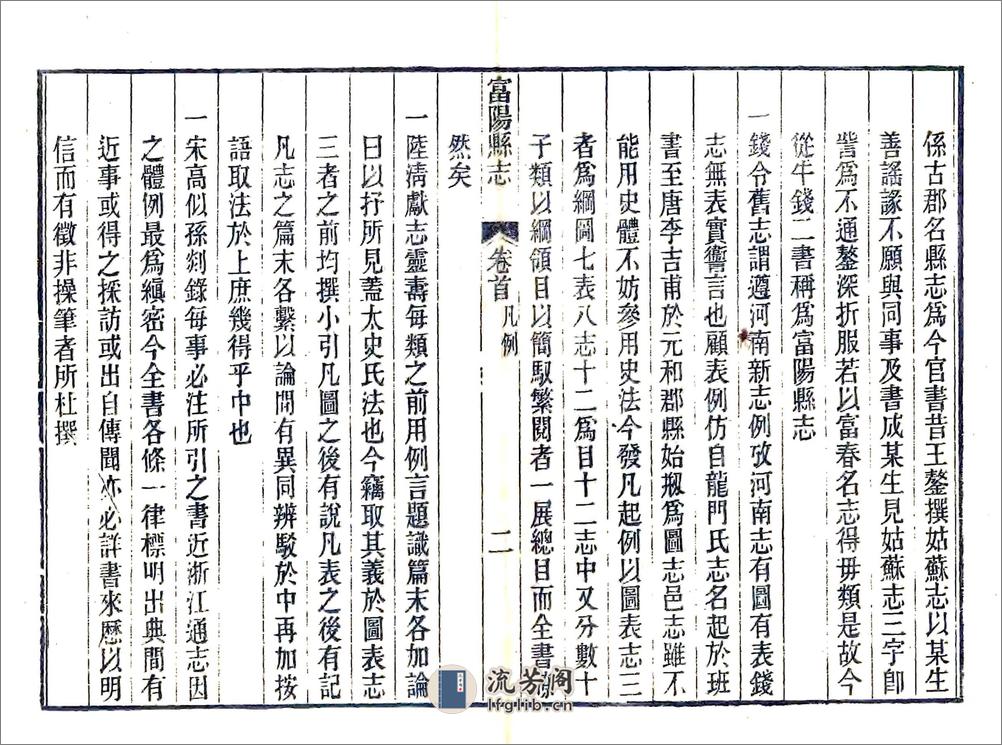 係古郡名縣志爲今官書昔王鏊撰姑蘇志以某生
善謡諑不願與同事及書成某生見姑蘇志三字卽
訾爲不通鏊深折服若以富春名志得毋類是故今
從牛錢二書稱爲富陽縣志
一錢令舊志謂遵河南新志例攷河南志有圖有表錢
志無表實讆言也顧表例仿自龍門氏志名起於班
書至唐李吉甫於元和郡縣始剏爲圖志邑志雖不
能用史體不妨叅用史法今發凡起例以圖表志三
者爲綱圖七表八志十二爲目十二志中又分數十
子類以綱領目以簡馭繁閱者一展總目而全書瞭
然矣
富陽縣志
卷首
凡例
二
一陸淸獻志靈壽每類之前用例言題識篇末各加論
曰以抒所見蓋太史氏法也今竊取其義於圖表志
三者之前均撰小引凡圖之後有說凡表之後有記
凡志之篇末各繫以論間有異同辨駁於中再加按
語取法於上庶幾得乎中也
一宋高似孫剡錄每事必注所引之書近浙江通志因
之體例最爲縝密今全書各條一律標明出典間有
近事或得之採訪或出自傳聞亦必詳書來歷以明
信而有徵非操筆者所杜撰
流芳阁
lfglib.cn